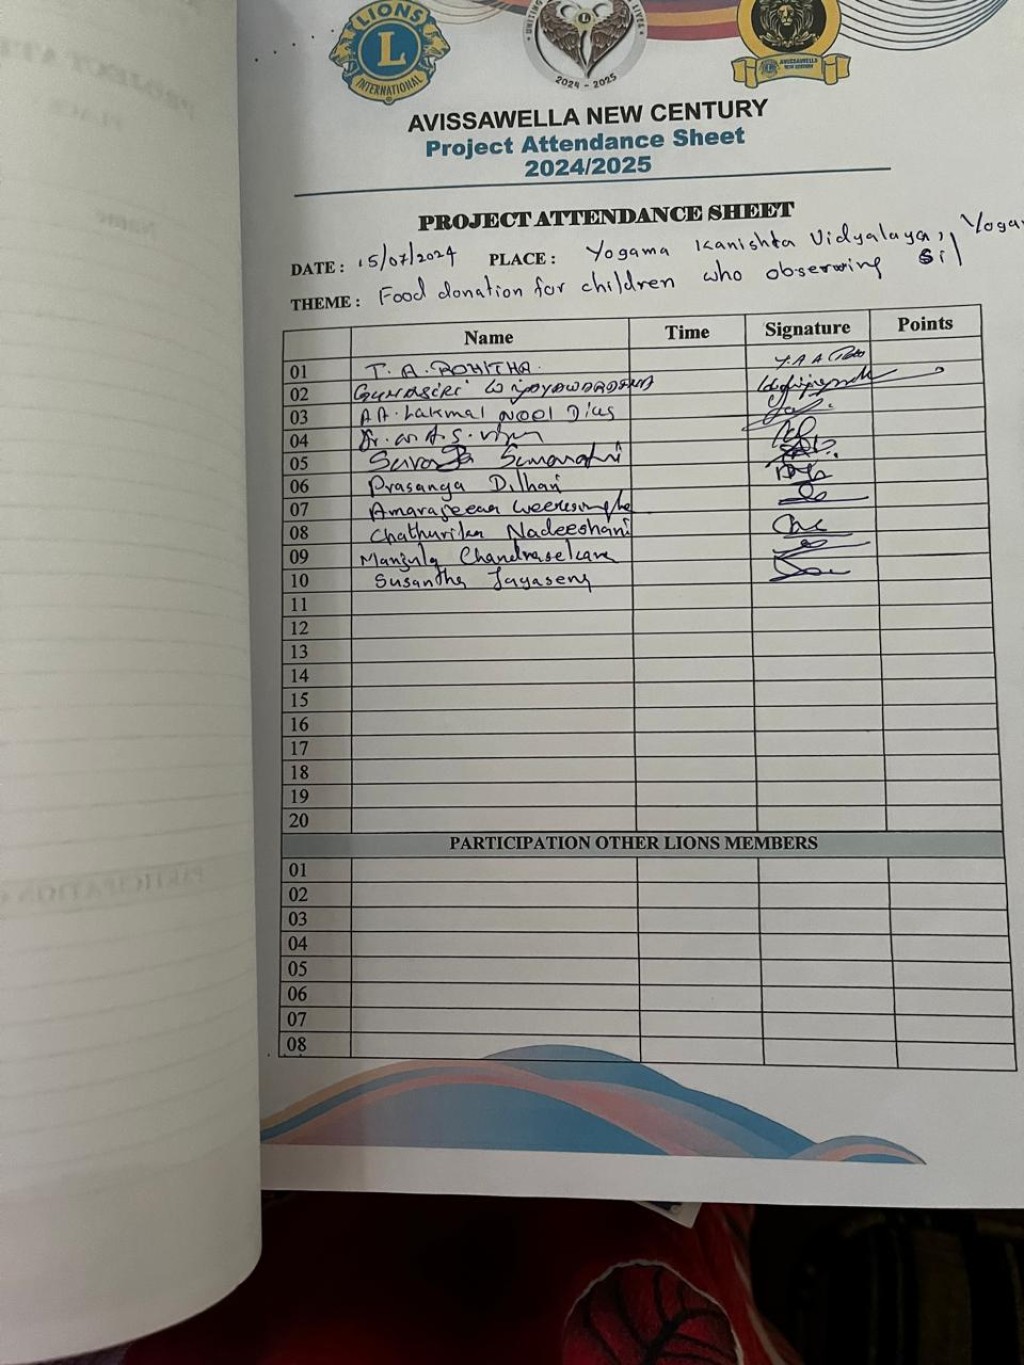 LIONS
L
INTERNATIONAL
2024 - 2025
AVISSAWELLA
NEW CENTURY
AVISSAWELLA NEW CENTURY
Project Attendance Sheet
2024/2025
PROJECT ATTENDANCE SHEET
DATE: 15/07/2024 PLACE: Yogama Kanishta Vidyalaya, Yoga
THEME: Food donation for children who observing Sil
Name Time Signature Points
01 T. A. ROHITHA
02 Gunasiri Wijayawardana
03 A.A. Lakmal Noel Dias
04 Dr.
05
06 Prasanga Dilhani
07 Weerasinghe
08 Chathurika Nadeeshani
09 Manjula Chandrasekara
10 Susantha Jayasena
11
12
13
14
15
16
17
18
19
20
PARTICIPATION OTHER LIONS MEMBERS
01
02
03
04
05
06
07
08